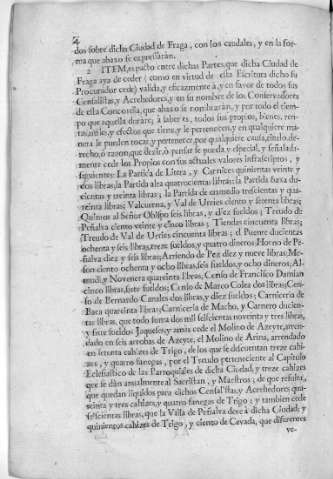 2
dos sobre dicha Ciudad de Fraga, con los caudales, y en la for-
ma que abaxo se expressarán.
2 ITEM, es pacto entre dichas Partes, que dicha Ciudad de
Fraga aya de ceder (como en virtud de esta Escritura dicho su
Procurador cede) valida, y eficazmente à, y en favor de todos sus
Censalistas, y Acrehedores, y en su nombre de los Conservadores
de esta Concordia, que abaxo se nombrarán, y por todo el tiem-
po que aquella durare; à saber es, todos sus propios, bienes, ren-
tas, y efectos que tiene, y le pertenecen, y en qualquiere ma-
nera le pueden tocar, y pertenecer, por qualquiere causa, titulo, de-
recho, ò razon, que decir, ò pensar se pueda; y especial, y señalada-
mente cede los Propios con sus actuales valores infrascriptos, y
siguientes: La Partida de Litera, y Carnices quinientas veinte y
dos libras; la Partida alta quatrocientas libras; la Partida baxa du-
cientas y treinta libras; la Partida de
treinta libras; Valcuerna, y Val de Urries ciento y setenta libras;
Quinto al Señor Obispo seis libras, y diez sueldos; Treudo de
Peñalva ciento veinte y cinco libras; Tiendas cincuenta libras;
Treudo de Val de Urries cincuenta libras; el Puente ducientas
ochenta y seis libras, treze sueldos, y quatro dineros; Horno de Pe-
ñalva diez y seis libras; Arriendo de Pez diez y nueve libras; Me-
son ciento ochenta y ocho libras, seis sueldos, y ocho dineros; Al-
mudi, y Novenera quarenta libras; Censo de Francisco Damian
cinco libras, siete sueldos; Censo de Marco Colea dos libras; Cen-
so de Bernardo Canales dos libras, y diez sueldos; Carniceria de
Baca quarenta libras; Carniceria de Macho, y Carnero ducien-
tas libras, que todo suma dos mil seiscientas noventa y tres libras,
y siete sueldos Jaqueses; y amás cede el Molino de Azeyte, arren-
dado en seis arrobas de Azeyte, el Molino de Arina, arrendado
en setenta cahizes de Trigo, de los que se descuentan treze cahi-
zes, y quatro fanegas, por el Treudo perteneciente al Capitulo
Eclesiastico de las Parroquiales de dicha Ciudad, y treze cahizes
que se dàn anualmente al Sacristan, y Maestros; de que resulta,
que quedan liquidos para dichos Censalistas, y Acrehedores qua-
renta y tres cahizes, y quatro fanegas de Trigo; y tambien cede
seiscientas libras, que la Villa de Peñalva deve à dicha Ciudad; y
quinientos cahizes de Trigo, y ciento de Cevada, que diferentes
ve-